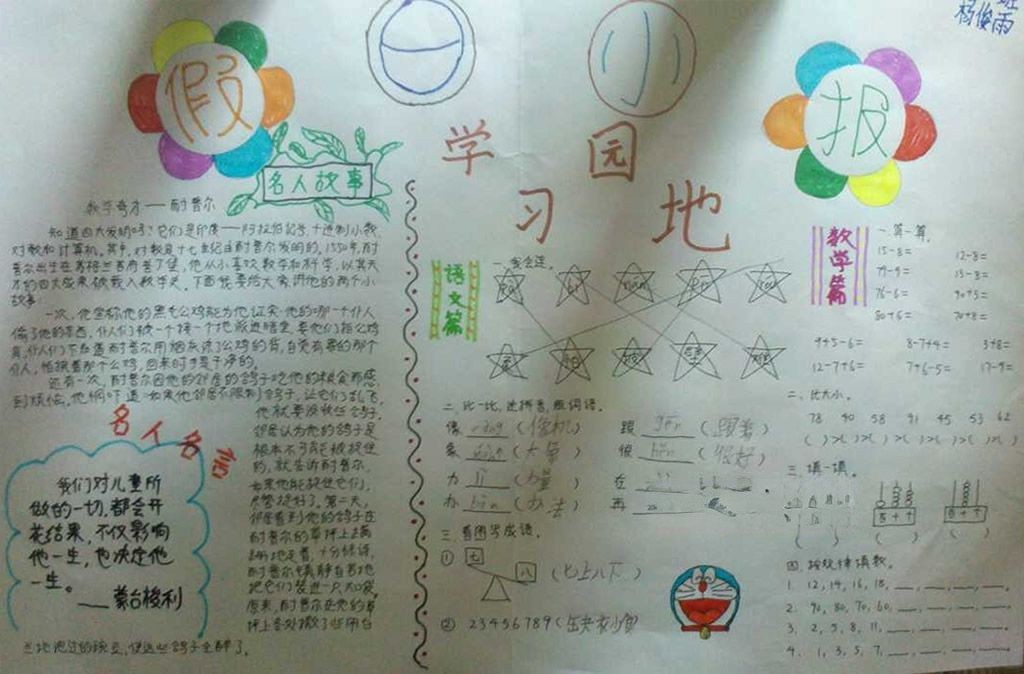 班
杨俊雨
假
日
小
报
学 园
习 地
名人故事
数学奇才——耐普尔
知道四大发明吗？它们是印度——阿拉伯记号，十进制小数，
对数和计算机。其中，对数是十七世纪由耐普尔发明的，1550年，耐
普尔出生在苏格兰首府爱丁堡，他从小喜欢数学和科学，以其天
才的四大成果被载入数学史，下面我要给大家讲他的两个小
故事：
一次，他宣称他的黑毛公鸡能为他证实：他的哪一个仆人
偷了他的东西，仆人们被一个接一个地派进暗室，要他们拍公鸡
背，仆人们不知道耐普尔用烟灰涂了公鸡的背，自觉有罪的那个
仆人，怕挨着那个公鸡，回来时手是干净的。
还有一次，耐普尔因他的邻居的鸽子吃他的粮食而感
到烦恼，他恫吓道：如果他邻居不限制鸽子，让它们乱飞，
他就要没收这些鸽子，
邻居认为他的鸽子是
根本不可能被捉住
的，就告诉耐普尔，
如果他能捉住它们，
尽管捉好了。第二天，
邻居看到他的鸽子在
耐普尔的草坪上
地走着，十分惊讶，
耐普尔镇静自若地
把它们装进一只大口袋，
原来，耐普尔在他的草
坪上各处撒了些用白
兰地泡过的豌豆，使这些鸽子全醉了。
名人名言
我们对儿童所
做的一切，都会开
花结果，不仅影响
他一生，也决定他
一生。
——蒙台梭利
语文篇
一、我会连。
二、比一比，选拼音，组词语。
像 （像机） 跟 gēn （跟着）
象 （大象） 很 hěn （很好）
力 lì （力量） 在
办 bàn （办法） 再
三、看图写成语。
① 七 八 （七上八下）
② 23456789（缺衣少食）
数学篇
一、算一算。
15-8= 12-8=
79-9= 13-8=
76-6= 90+5=
80+6= 70+8=
9+5-6= 8-7+4= 3+8=
12-7+6= 7+6-5= 17-9=
二、比大小。
78 40 58 91 45 53 62
( )>( )>( )>( )>( )>( )>( )
三、填一填。
百 十 个
( ) ( ) ( )
四、按规律填数。
1. 12，14，16，18，
2. 90，80，70，60，
3. 2，5，8，11，
4. 1，3，5，7，